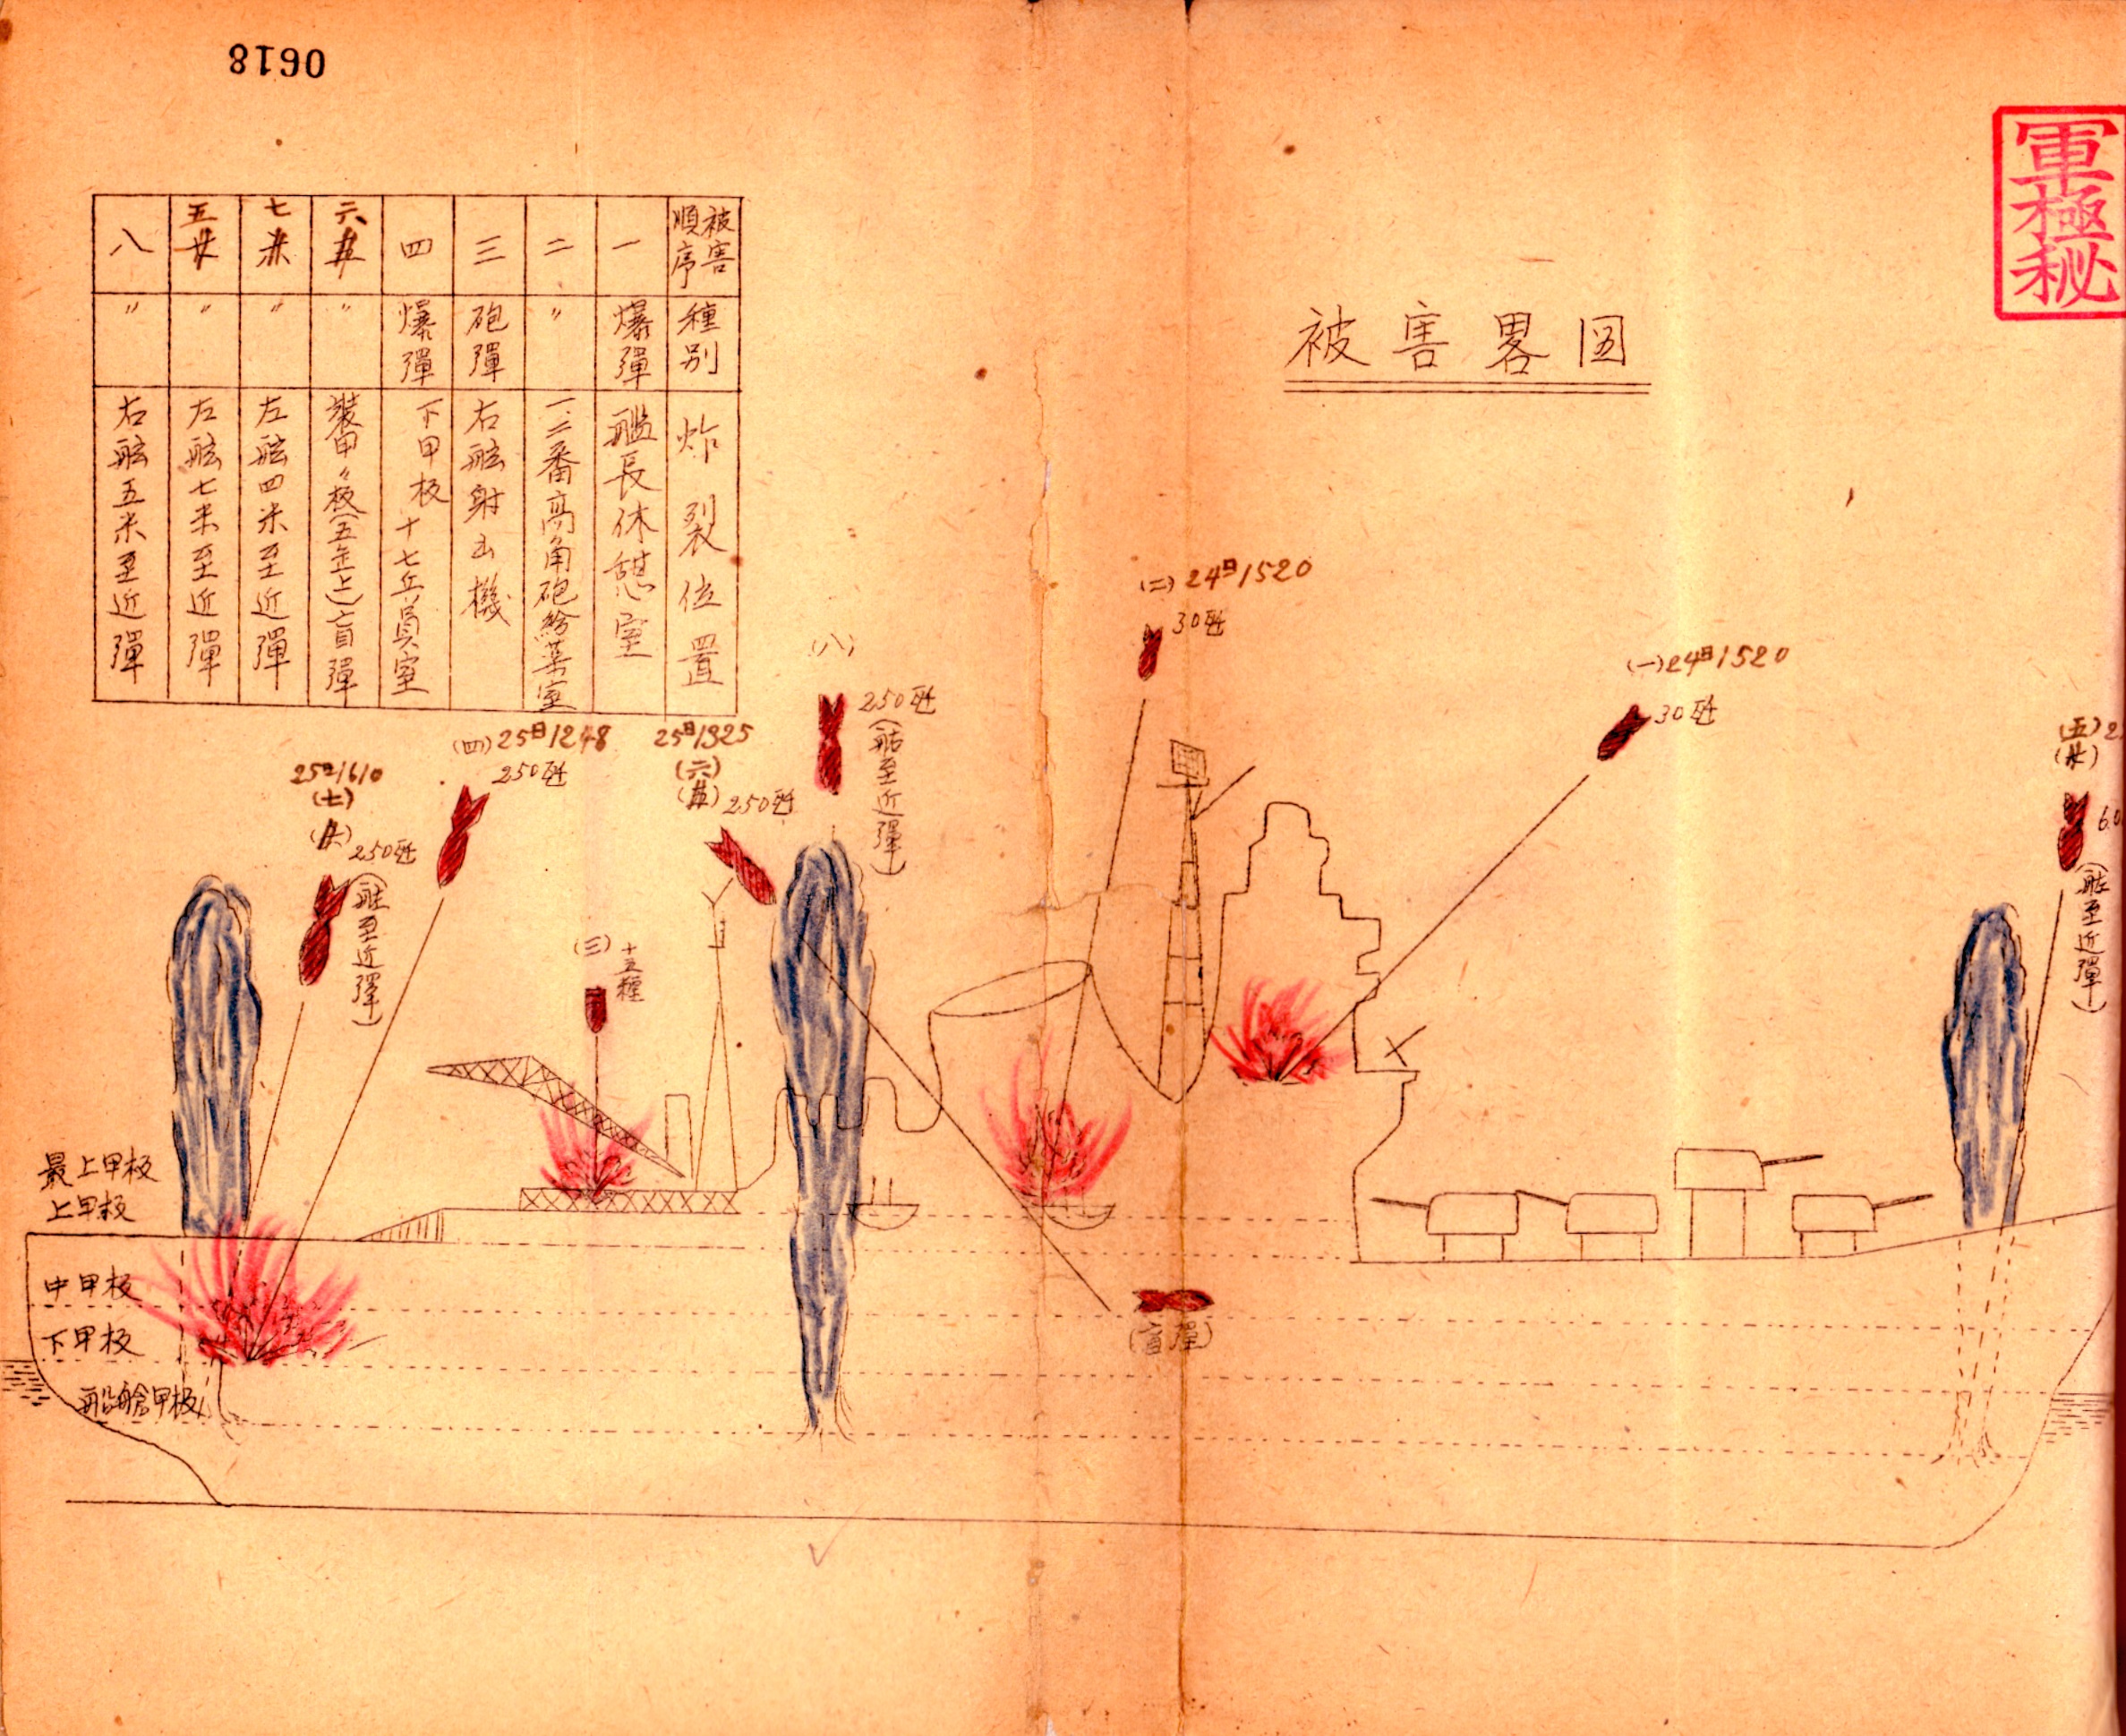 0618
軍極秘
被害畧図
被害順序
種別
炸裂位置
一
爆彈
艦長休憩室
二
〃
一、二番高角砲給薬室
三
砲彈
右舷射出機
四
爆彈
下甲板十七兵員室
六
〃
装甲〃板(五缶上)盲彈
七
〃
左舷四米至近彈
五
〃
左舷七米至近彈
八
〃
右舷五米至近彈
(二)24日1520
30瓩
(一)24日1520
30瓩
(八)
250瓩
(舷至近彈)
(四)25日1248
250瓩
25日1325
(六)
250瓩
25日1610
(七)
250瓩
(舷至近彈)
(三)
十五糎
(五)2
60
(舷至近彈)
最上甲板
上甲板
中甲板
下甲板
船艙甲板
(盲彈)